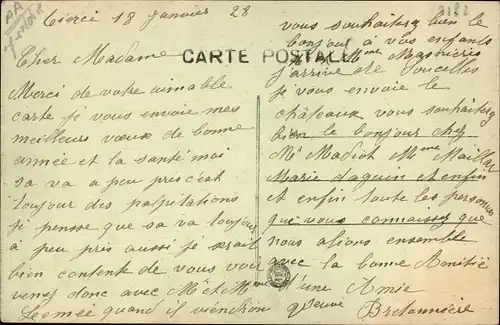 Tiercé 18 Janvier 28
Cher Madame
CARTE POSTALE
Merci de votre aimable
carte je vous envoie mes
meilleurs vœux de bonne
année et la santé moi
sa va a peu pres c'est
toujour des palpitations
je pensse que sa va toujour
à peu près aussi je serait
bien contente de vous voir
venez donc avec Mr et Mme
quand il viendron
vous souhaiterez bien le
bonjour a vos enfants
Mme
j'arrive de Soucelles
je vous envoie le
châteaux vous souhaiterez
bien le bonjour chez
Mr Madiot Mme Maillar
Marie daguin et enfin
et enfin toute les personnes
que vous connaissez que
nous alions ensemble
avec la bonne Amitié
d'une Amie
Veuve Bretonnière